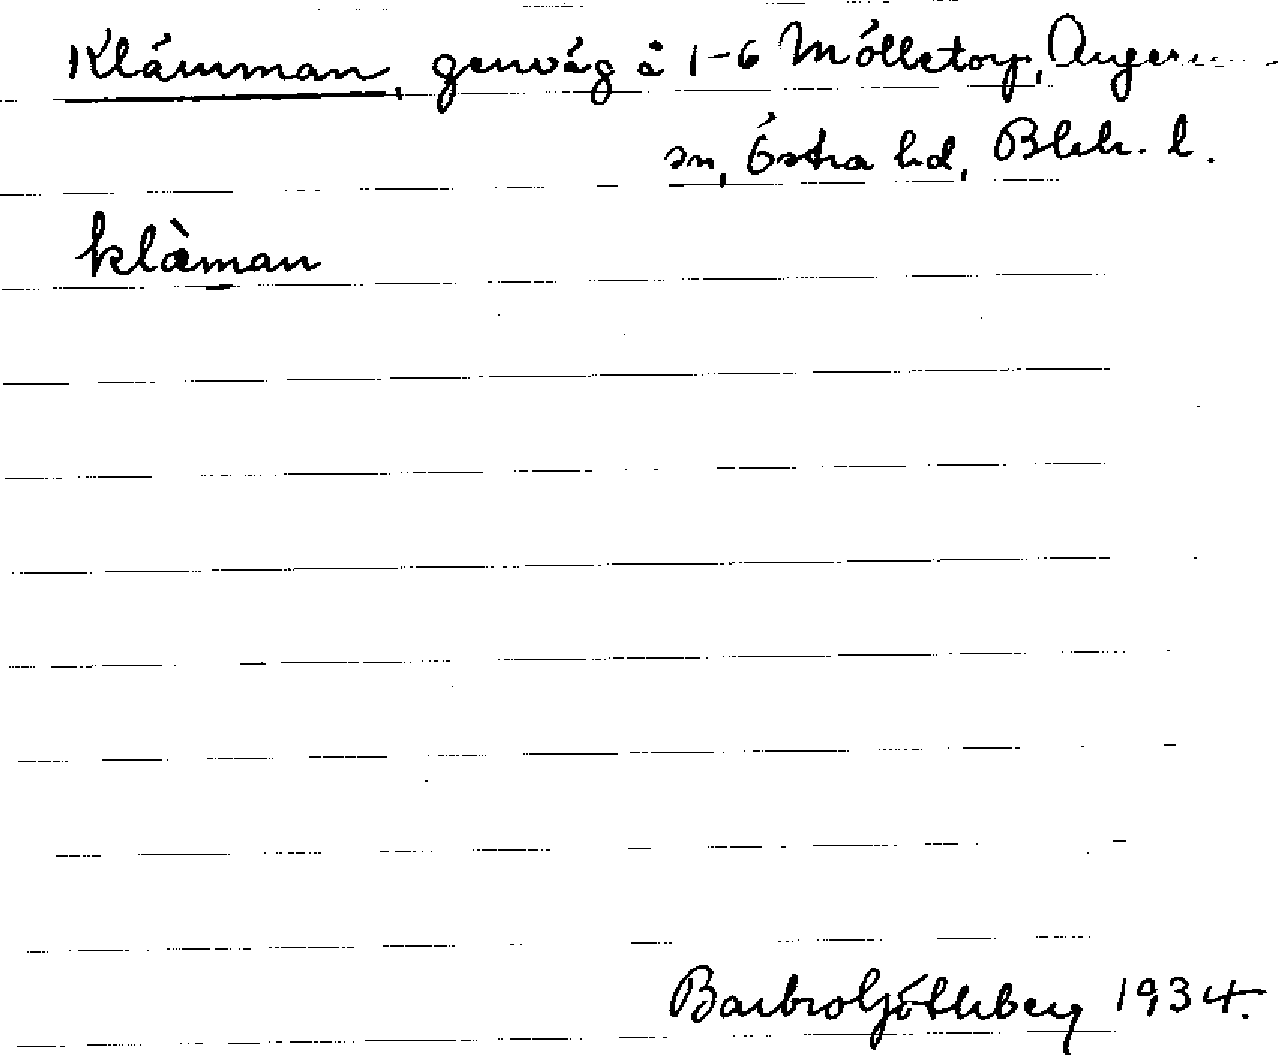 Klämman, genväg å 1-6 Mölletorp, Augerum
sn, Östra hd, Blek. l.
klæ̀man
Barbro Götlberg 1934.